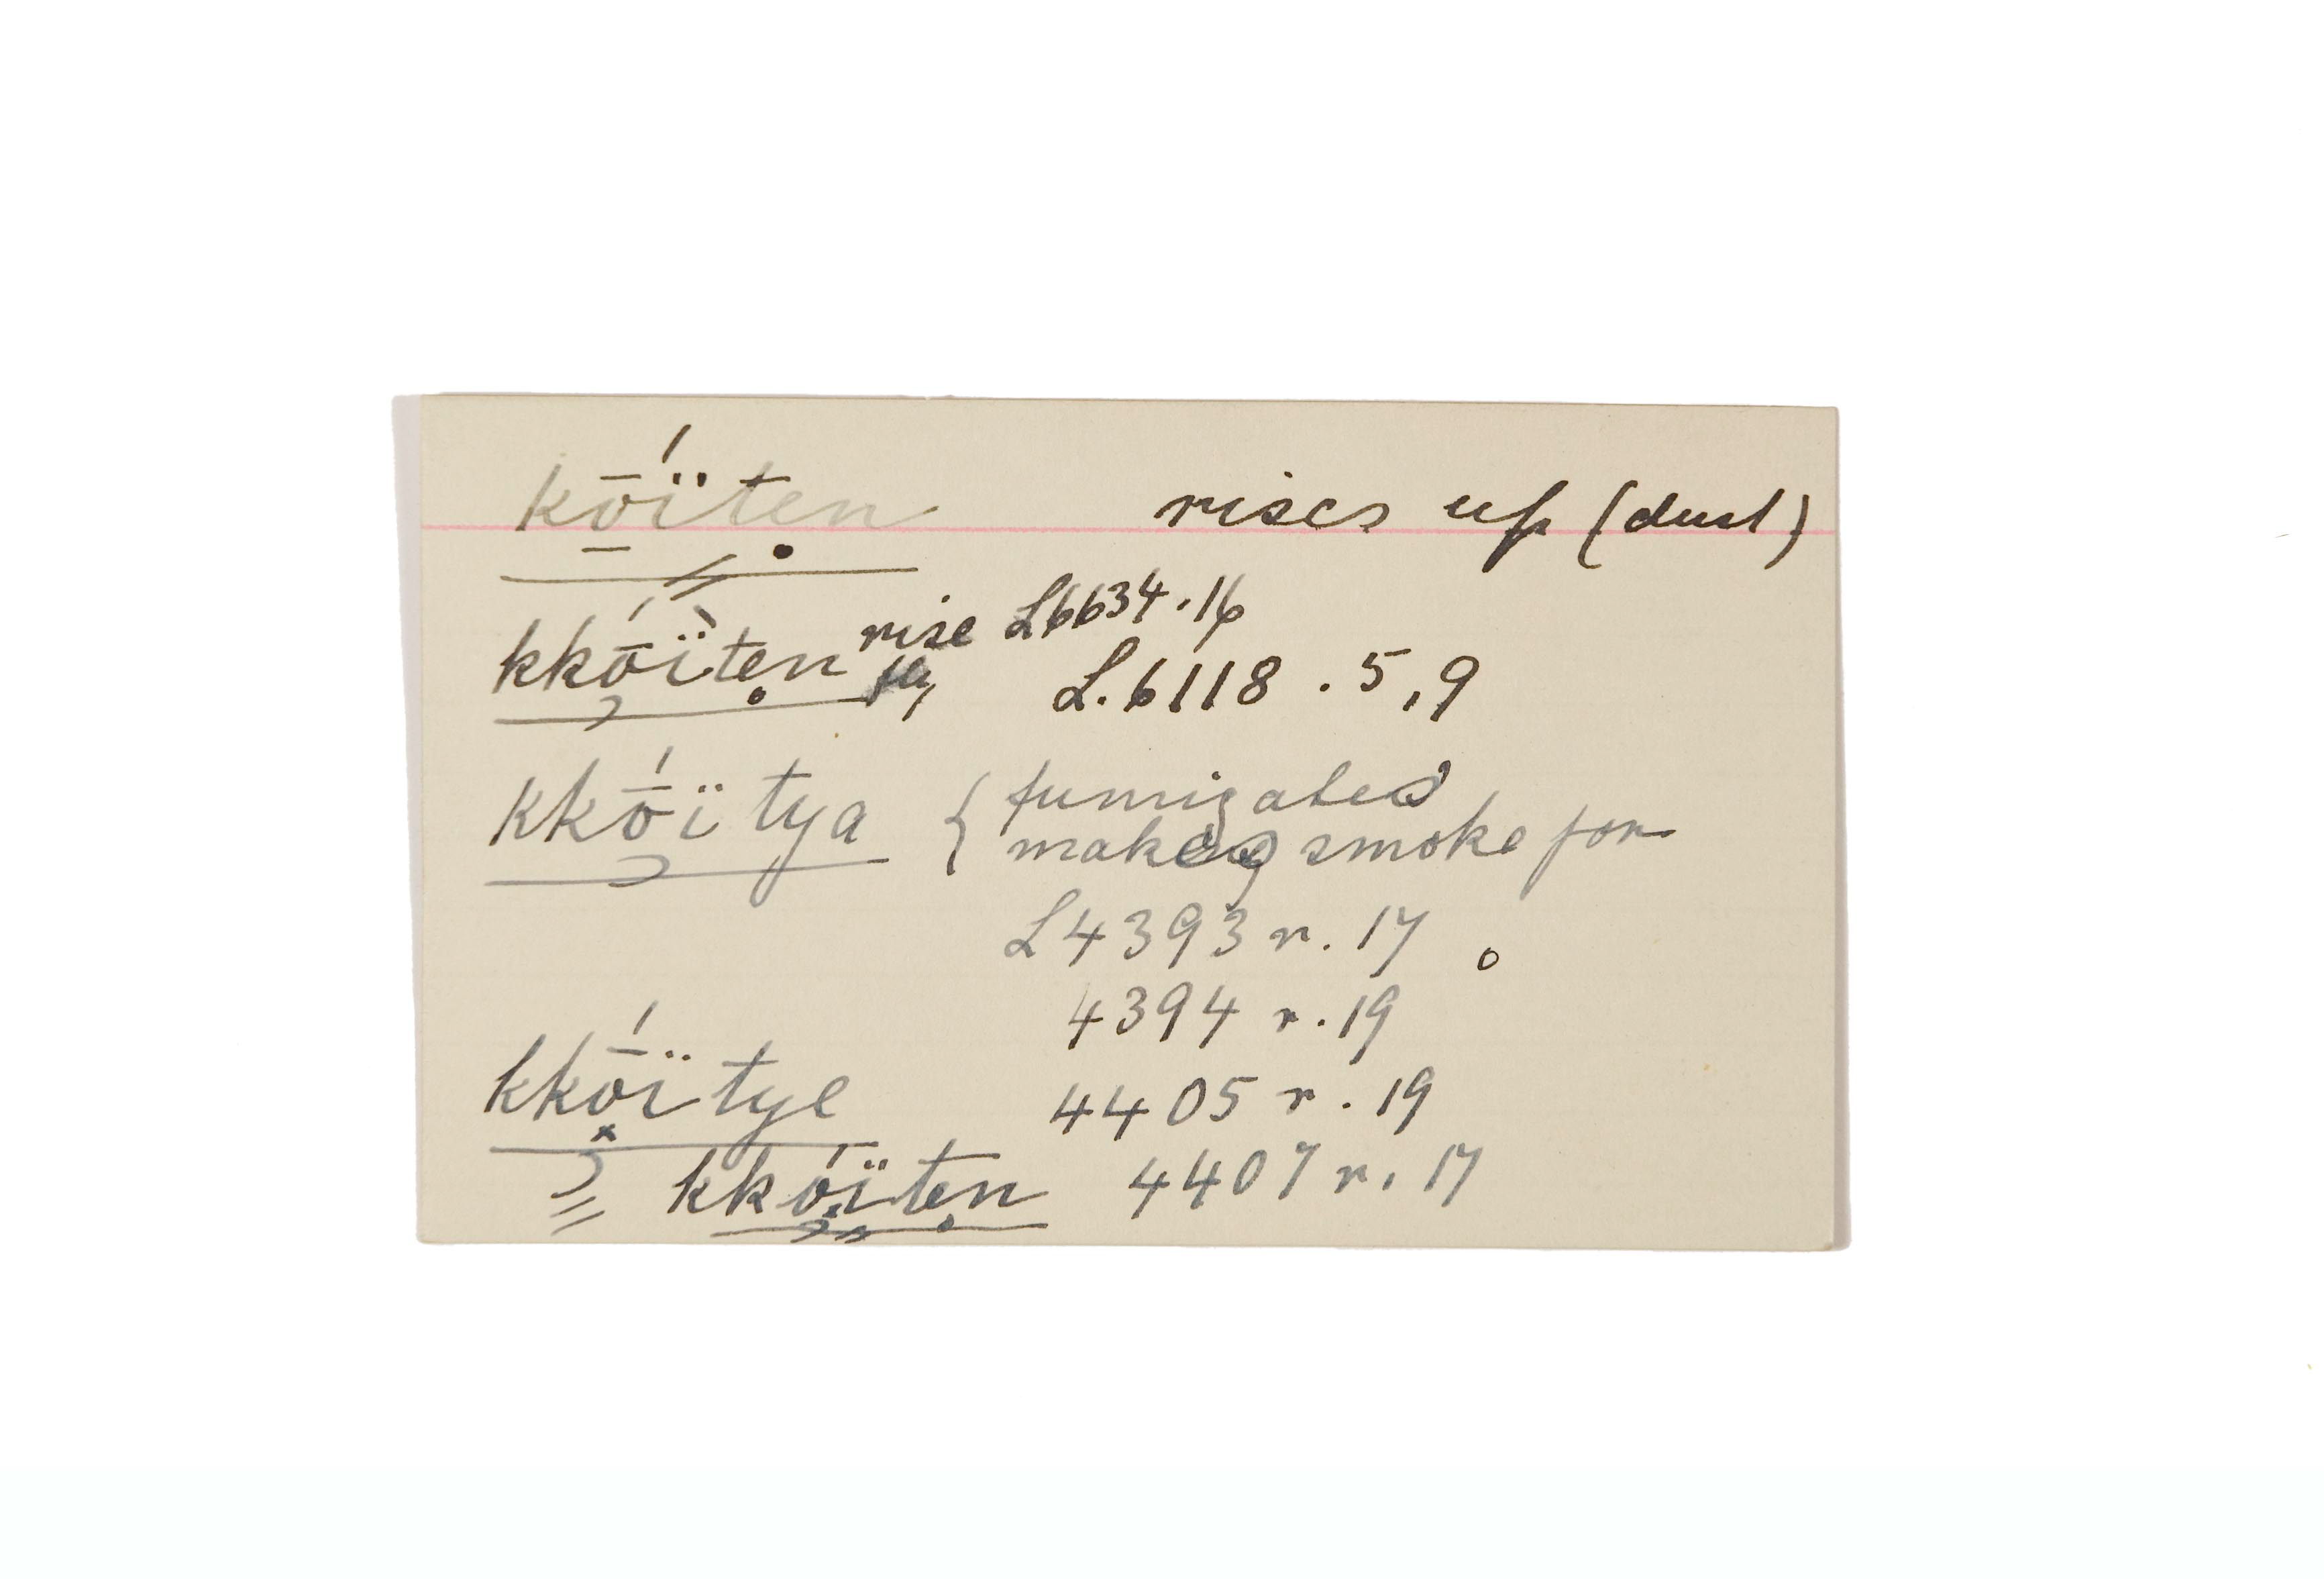 kṓïtẹn rises up (dust)
kkṓïtẹn rise L6634.16
L.6118.5,9
kkṓï tya { fumigates
makes smoke for
L4393 r. 17 o
4394 r. 19
kkṓï tye 4405 r. 19
= kkóïtẹn 4407 r. 17